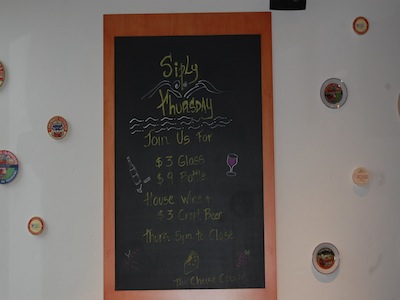 Siply
Thursday
Join Us For
$3 Glass
$9 Bottle
House Wine &
$3 Craft Beer
Thurs 5pm to Close
The Cheese Course